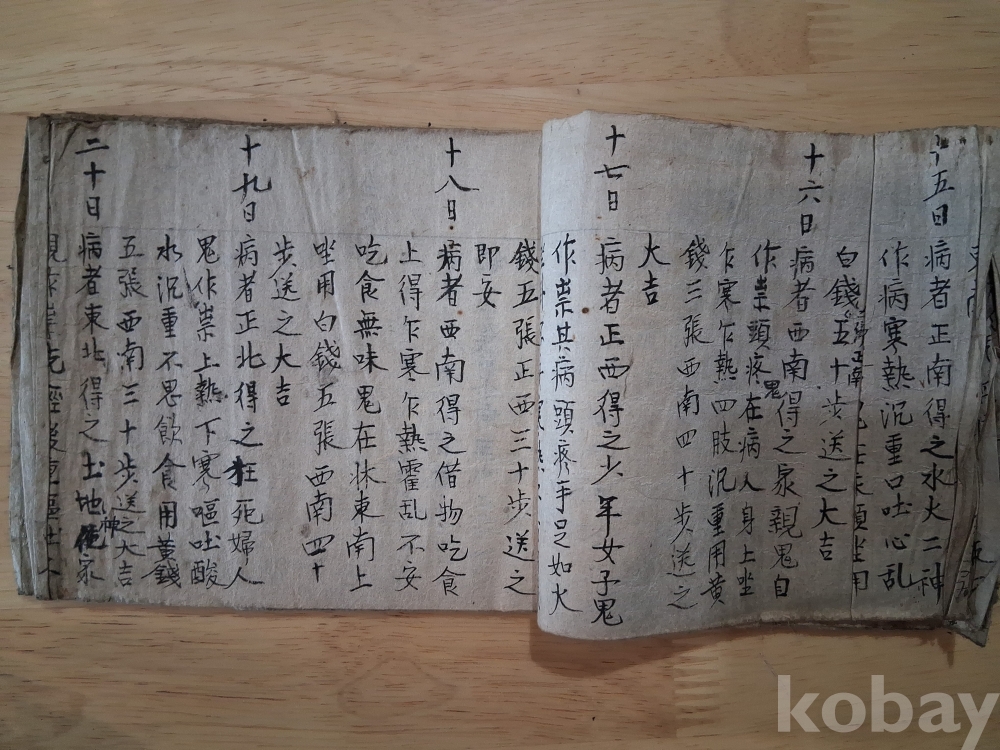 十五日 病者正南得之水火二神
作病寒熱沉重口吐心乱
頭坐用
白錢五張正南
五十步送之大吉
十六日 病者西南得之家親鬼自
作祟頭疼鬼在病人身上坐
乍寒乍熱四肢沉重用黄
錢三張西南四十步送之
大吉
十七日 病者正西得之少年女子鬼
作祟其病頭疼手足如火
錢五張正西三十步送之
即安
十八日 病者西南得之借物吃食
上得乍寒乍熱霍乱不安
吃食無味鬼在牀東南上
坐用白錢五張西南四十
步送之大吉
十九日 病者正北得之枉死婦人
鬼作祟上熱下寒嘔吐酸
水沉重不思飲食用黄錢
五張西南三十步送之大吉
二十日 病者東北得之土地神家
kobay